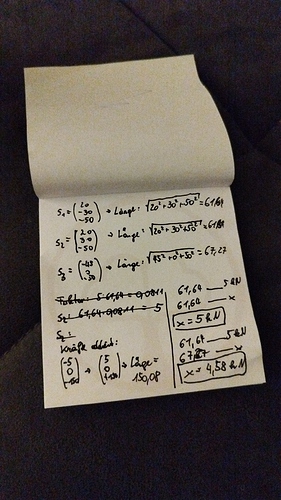 S₁ = (20 -30 -50) → Länge: √20² + 30² + 50² = 61,64
S₂ = (20 30 -50) → Länge: √20² + 30² + 50² = 61,64
S₃ = (-45 0 -50) → Länge: √45² + 0² + 50² = 67,27
5 · 61,64 = 0,0811
S₂: 61,64 · 0,0811 = 5
S₂:
Kräfte
(-5 0 -150) → (5 0 +150) → Länge = 150,08
61,64 — 5 kN
61,64 — x
x = 5 kN
61,64 — 5 kN
67,27 — x
x = 4,58 kN